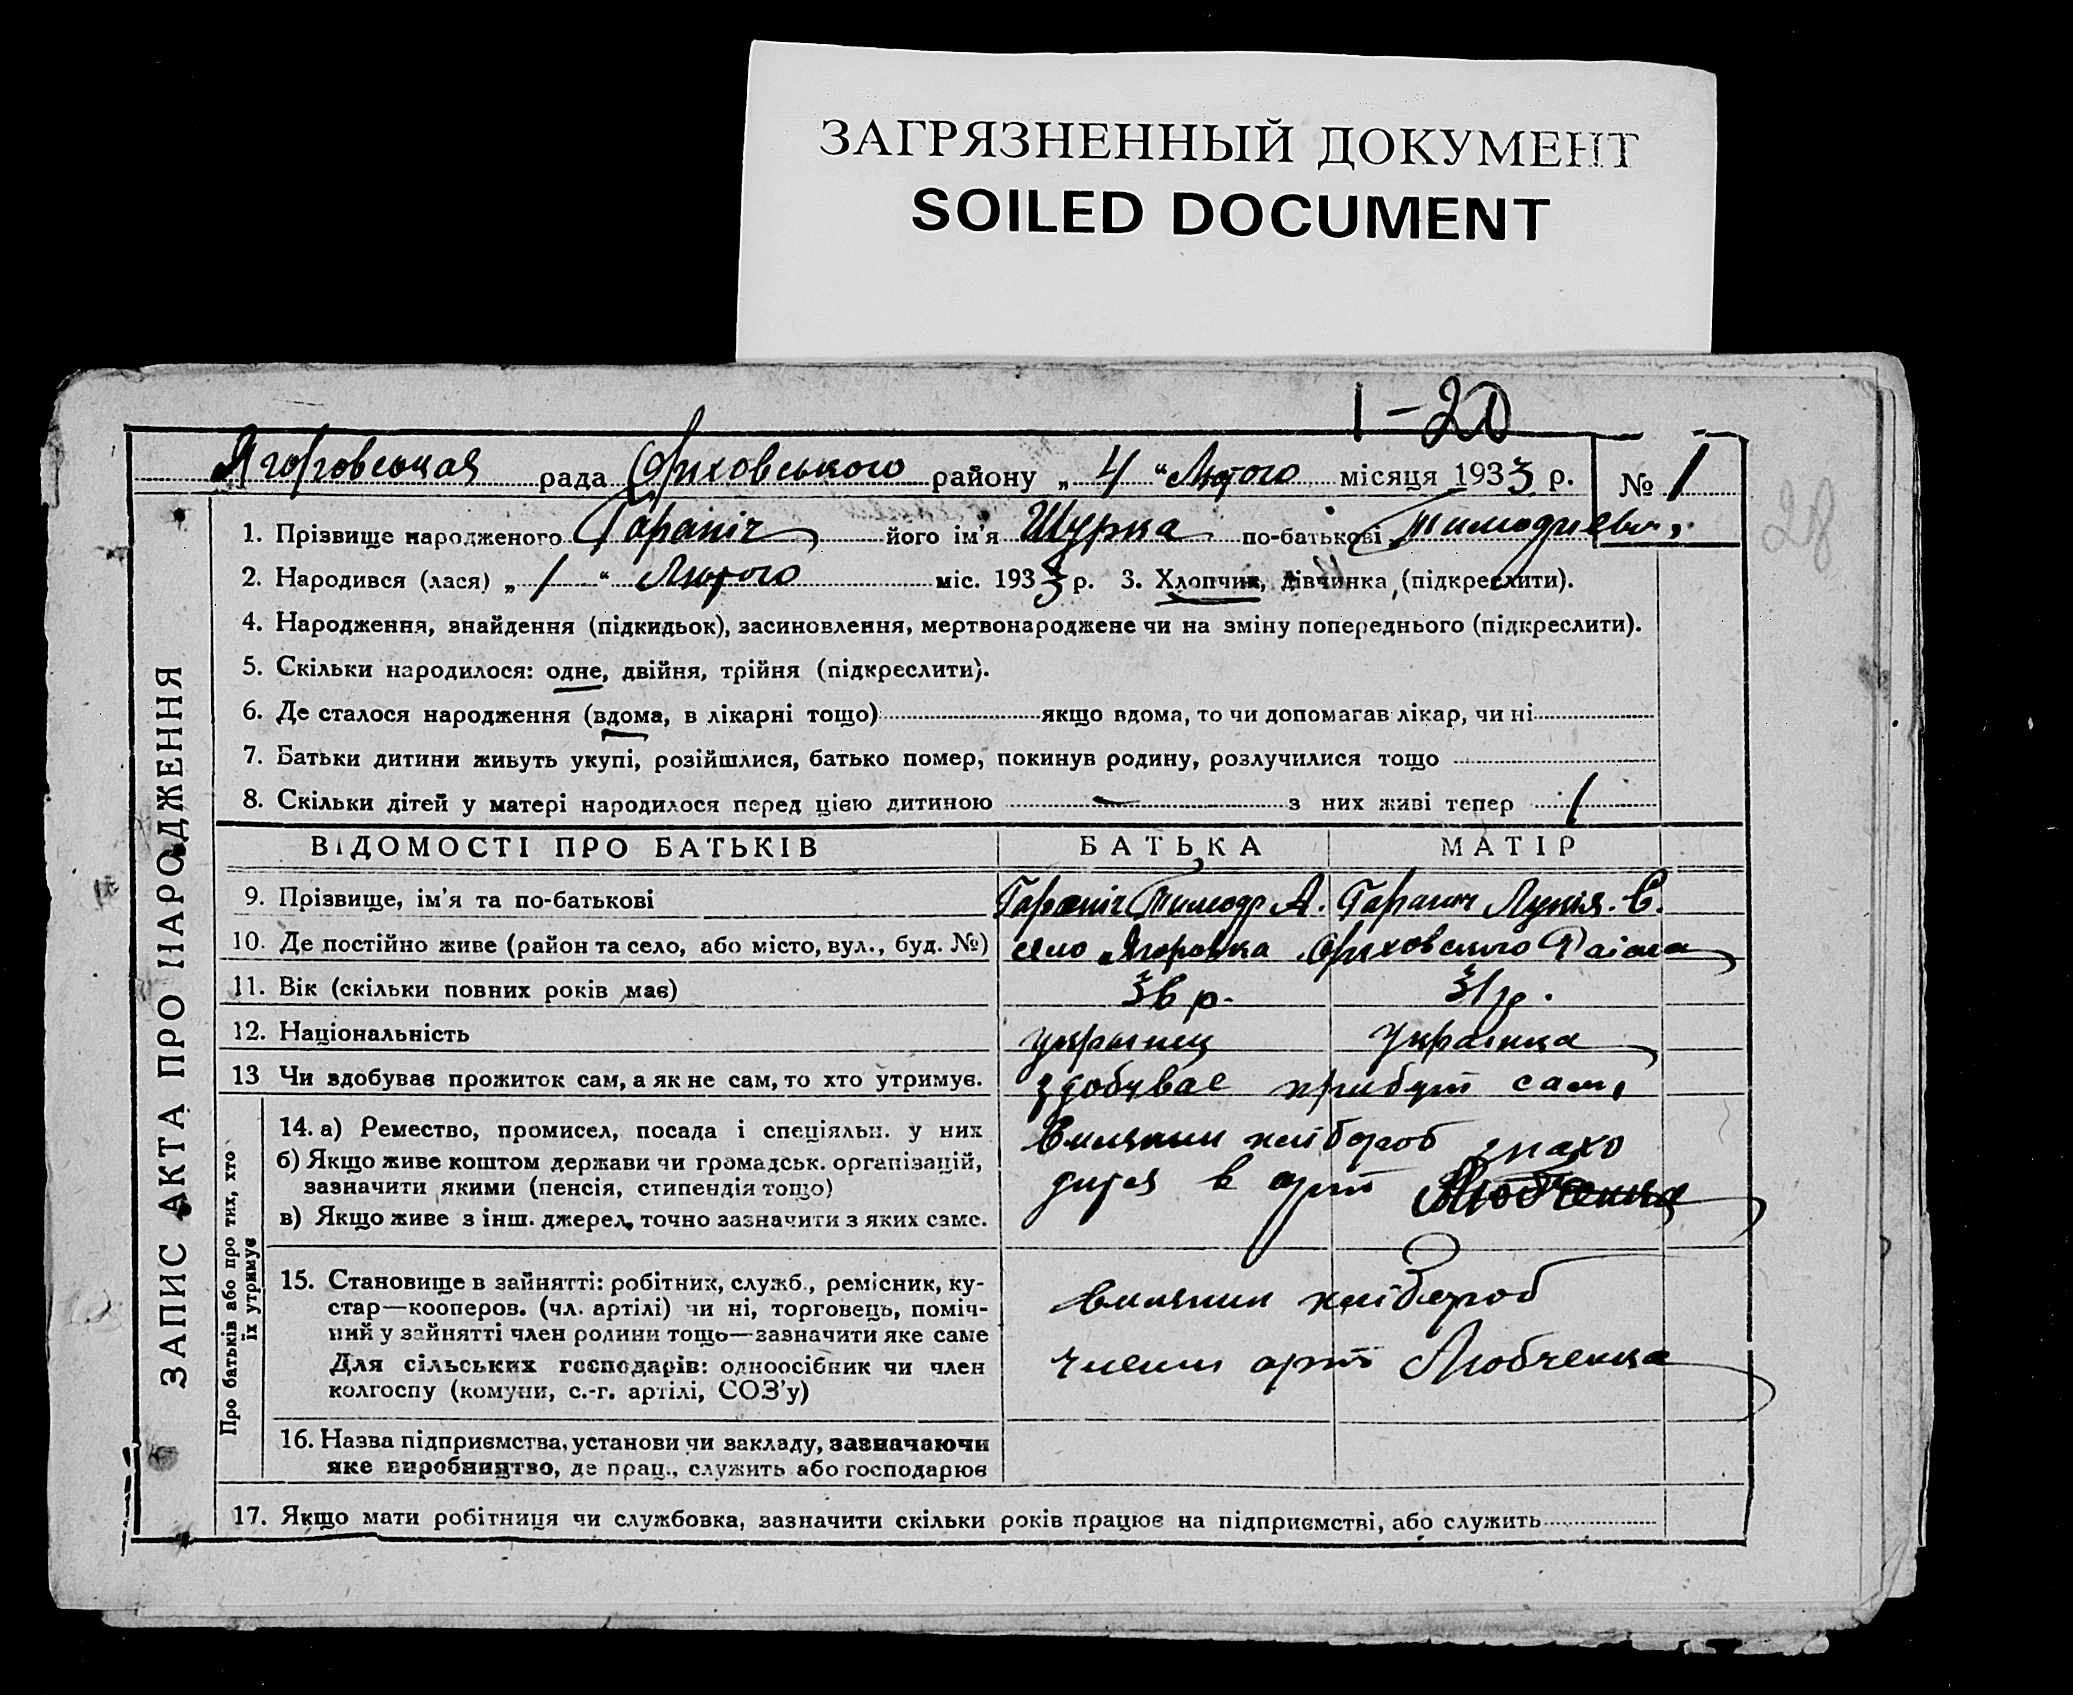 ЗАГРЯЗНЕННЫЙ ДОКУМЕНТ
SOILED DOCUMENT
1-20
28
Ягоровськая рада Оріховського району „ 4 “ Лютого місяця 1933 р. № 1
ЗАПИС АКТА ПРО НАРОДЖЕННЯ
1. Прізвище народженого Гараніч його ім'я Шурка по-батькові
2. Народився (лася) „ 1 “ Лютого міс. 1933 р. 3. Хлопчик, дівчинка, (підкреслити).
4. Народження, знайдення (підкидьок), засиновлення, мертвонароджене чи на зміну попереднього (підкреслити).
5. Скільки народилося: одне, двійня, трійня (підкреслити).
6. Де сталося народження (вдома, в лікарні тощо) якщо вдома, то чи допомагав лікар, чи ні
7. Батьки дитини живуть укупі, розійшлися, батько помер, покинув родину, розлучилися тощо
8. Скільки дітей у матері народилося перед цією дитиною — з них живі тепер 1
ВІДОМОСТІ ПРО БАТЬКІВ БАТЬКА МАТІР
9. Прізвище, ім'я та по-батькові Гараніч А. Гаранич Лукія. Є.
10. Де постійно живе (район та село, або місто, вул., буд. №) село Ягоровка Оріховського Раіона
11. Вік (скільки повних років має) 36 р. 31 р.
12. Національність украінец украінка
13 Чи здобував прожиток сам, а як не сам, то хто утримує. здобувае прибут сам,
Про батьків або про тих, хто
їх утримує
14. а) Ремество, промисел, посада і спеціяльн. у них хлібороб знахо
б) Якщо живе коштом держави чи громадськ. організацій,
зазначити якими (пенсія, стипендія тощо) дится в арт Любченка
в) Якщо живе з інш. джерел, точно зазначити з яких саме.
15. Становище в зайнятті: робітник, служб., ремісник, ку-
стар—кооперов. (чл. артілі) чи ні, торговець, поміч- хлібороб
ний у зайнятті член родини тощо—зазначити яке саме
Для сільських господарів: одноосібник чи член член арт Любченка
колгоспу (комуни, с.-г. артілі, СОЗ'у)
16. Назва підприємства, установи чи закладу, зазначаючи
яке виробництво, де прац., служить або господарює
17. Якщо мати робітниця чи службовка, зазначити скільки років працює на підприємстві, або служить